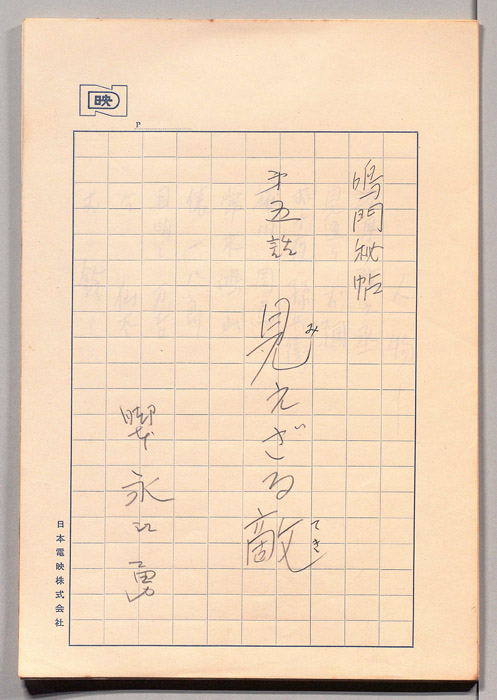 鳴門秘帖
第五話
見えざる敵
み
てき
脚本
永江勇
日本電映株式会社
映
P